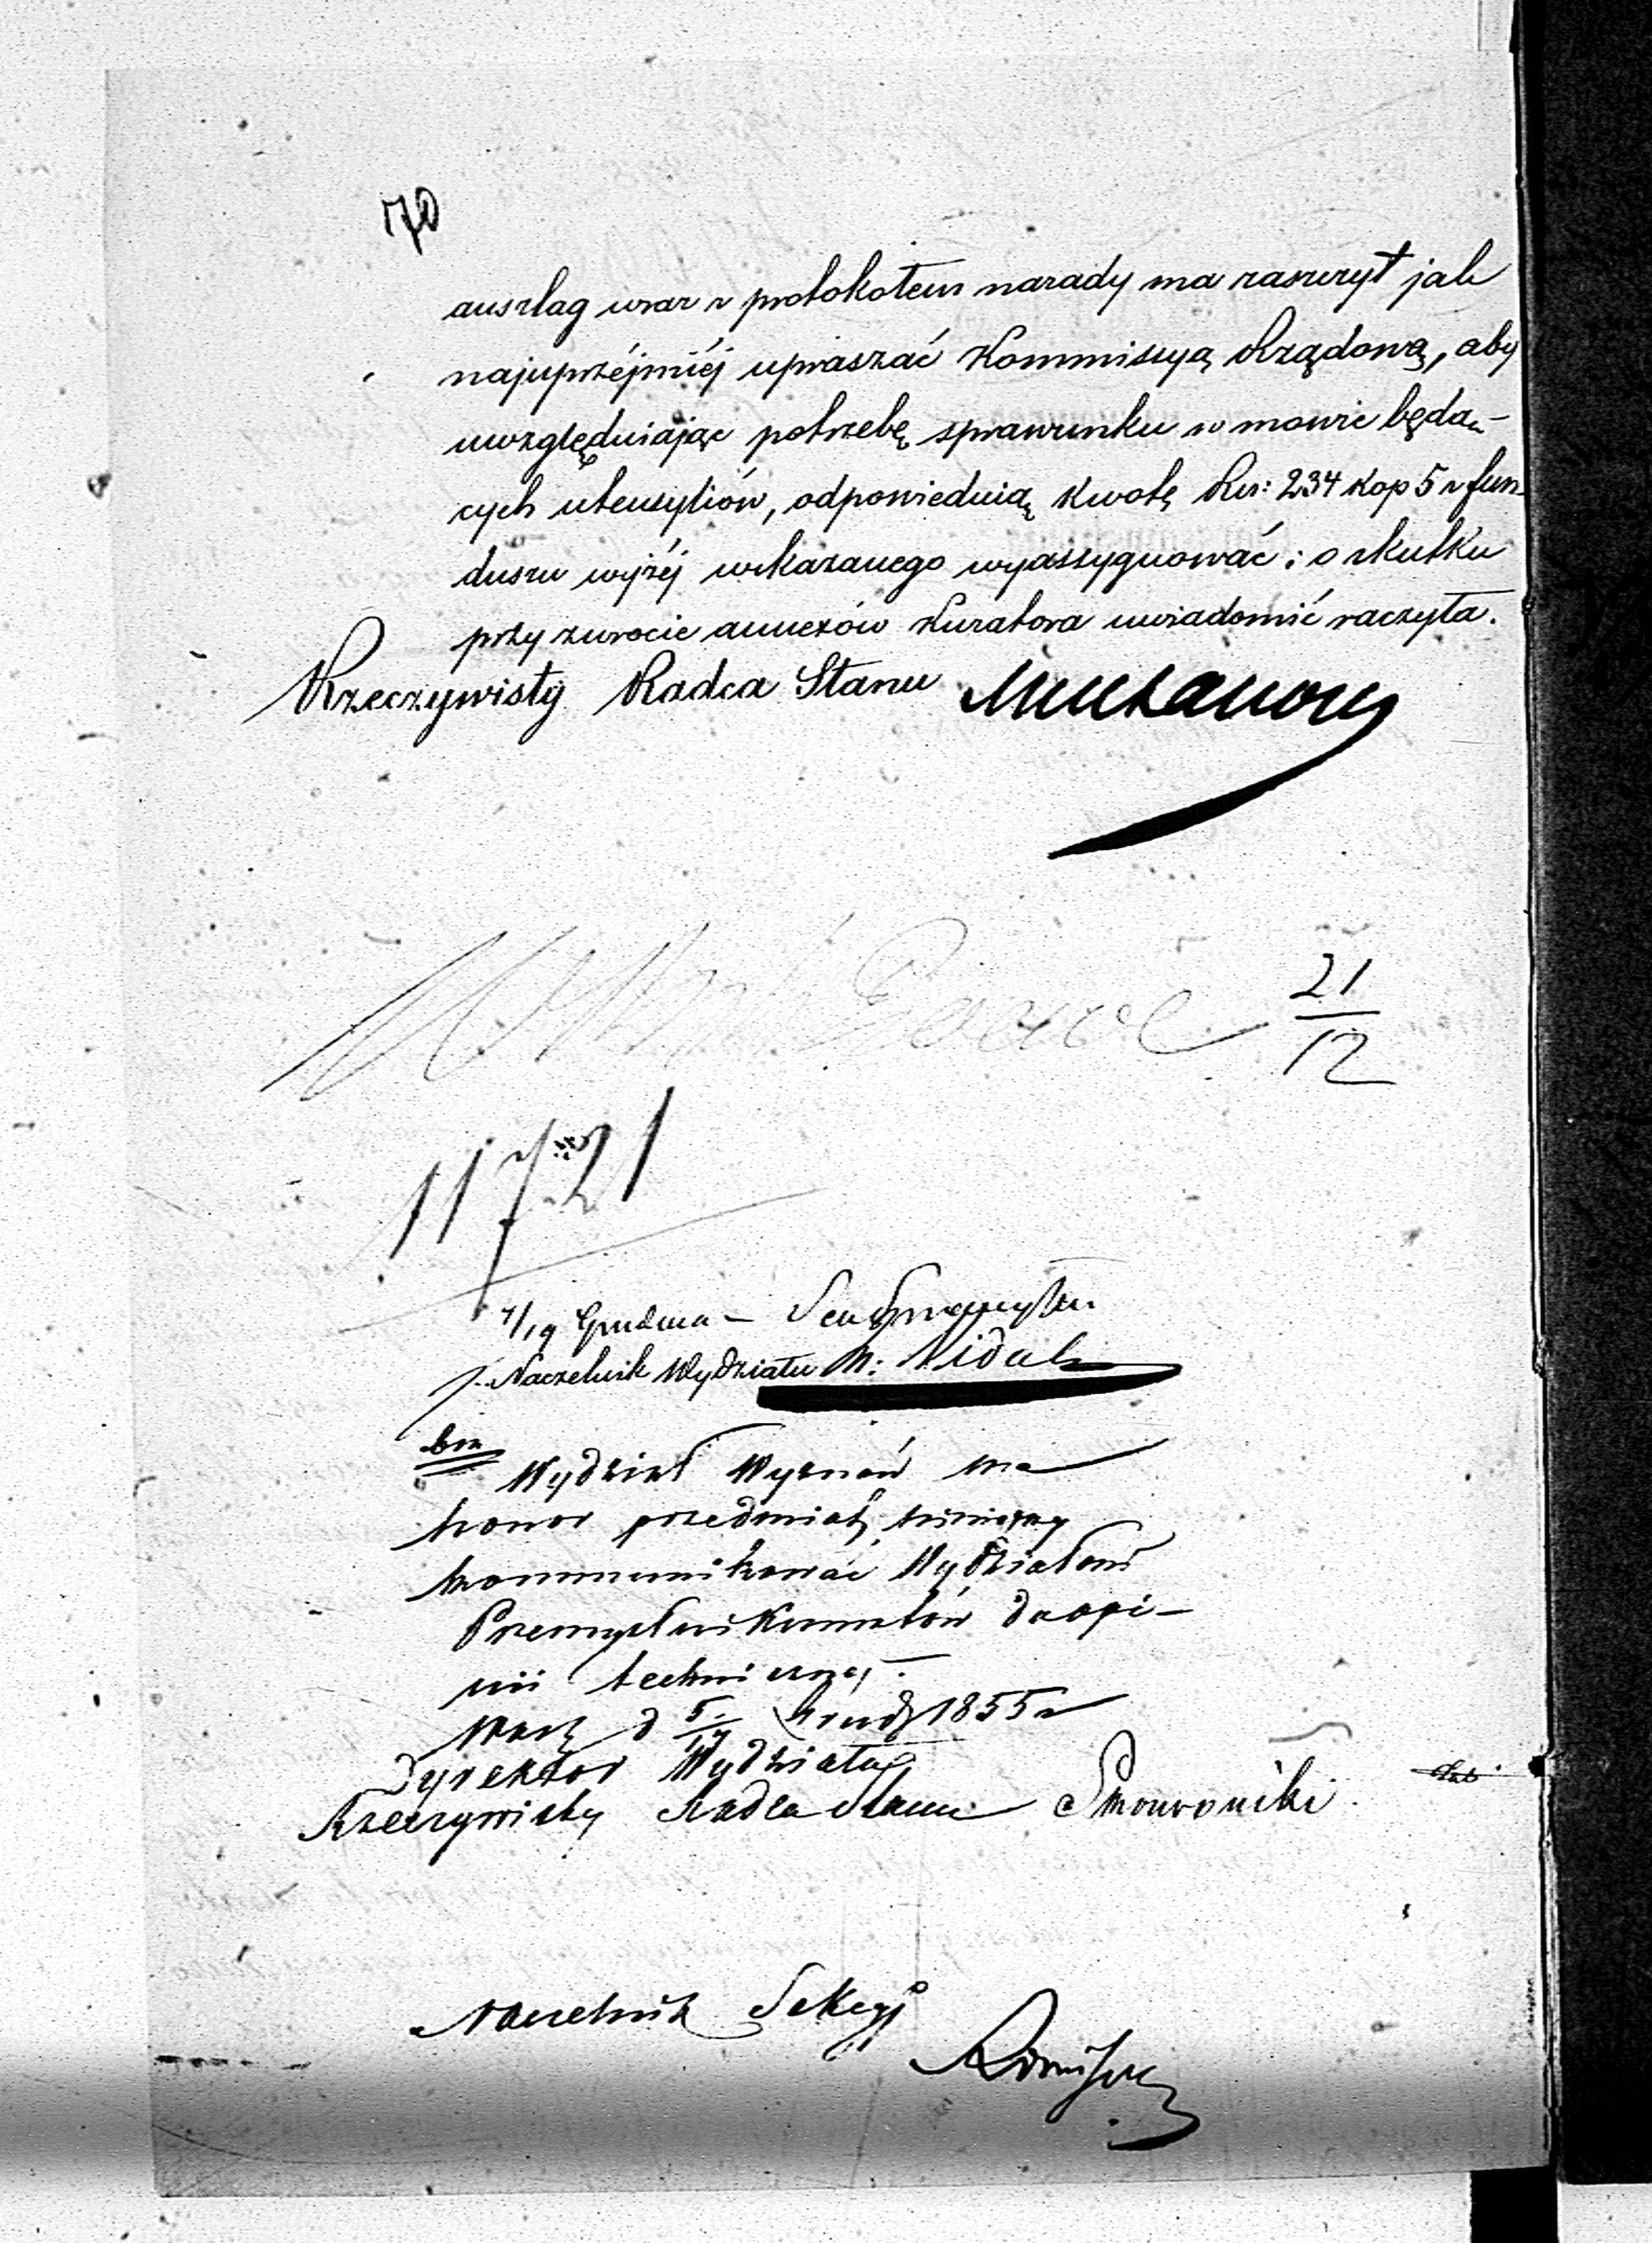 70
anszlag wraz z protokołem narady ma zaszczyt jak
najuprzéjmiéj upraszać Kommissyą Rządową, aby
uwzględniając potrzebę sprawunku w mowie będą-
cych utensyliów, odpowiednią kwotę Rsr: 234 kop 5 z fun-
duszu wyżéj wskazanego wyassygnować i o skutku
przy zwrocie annexów Kuratora uwiadomić raczyła.
Rzeczywisty Radca Stanu Muchanow
21/12
11721
7/19 Grudnia –
Naczelnik Wydziału
Wydział Wyznań ma
honor przedmiot niniejszy
kommunikować Wydziałowi
Przemysłu i Kunsztów do opi-
nii technicznej.
Warsz d 5/17 Grudz 1855 r
Dyrektor Wydziału
Rzeczywisty Radca Stanu
Naczelnik Sekcyi